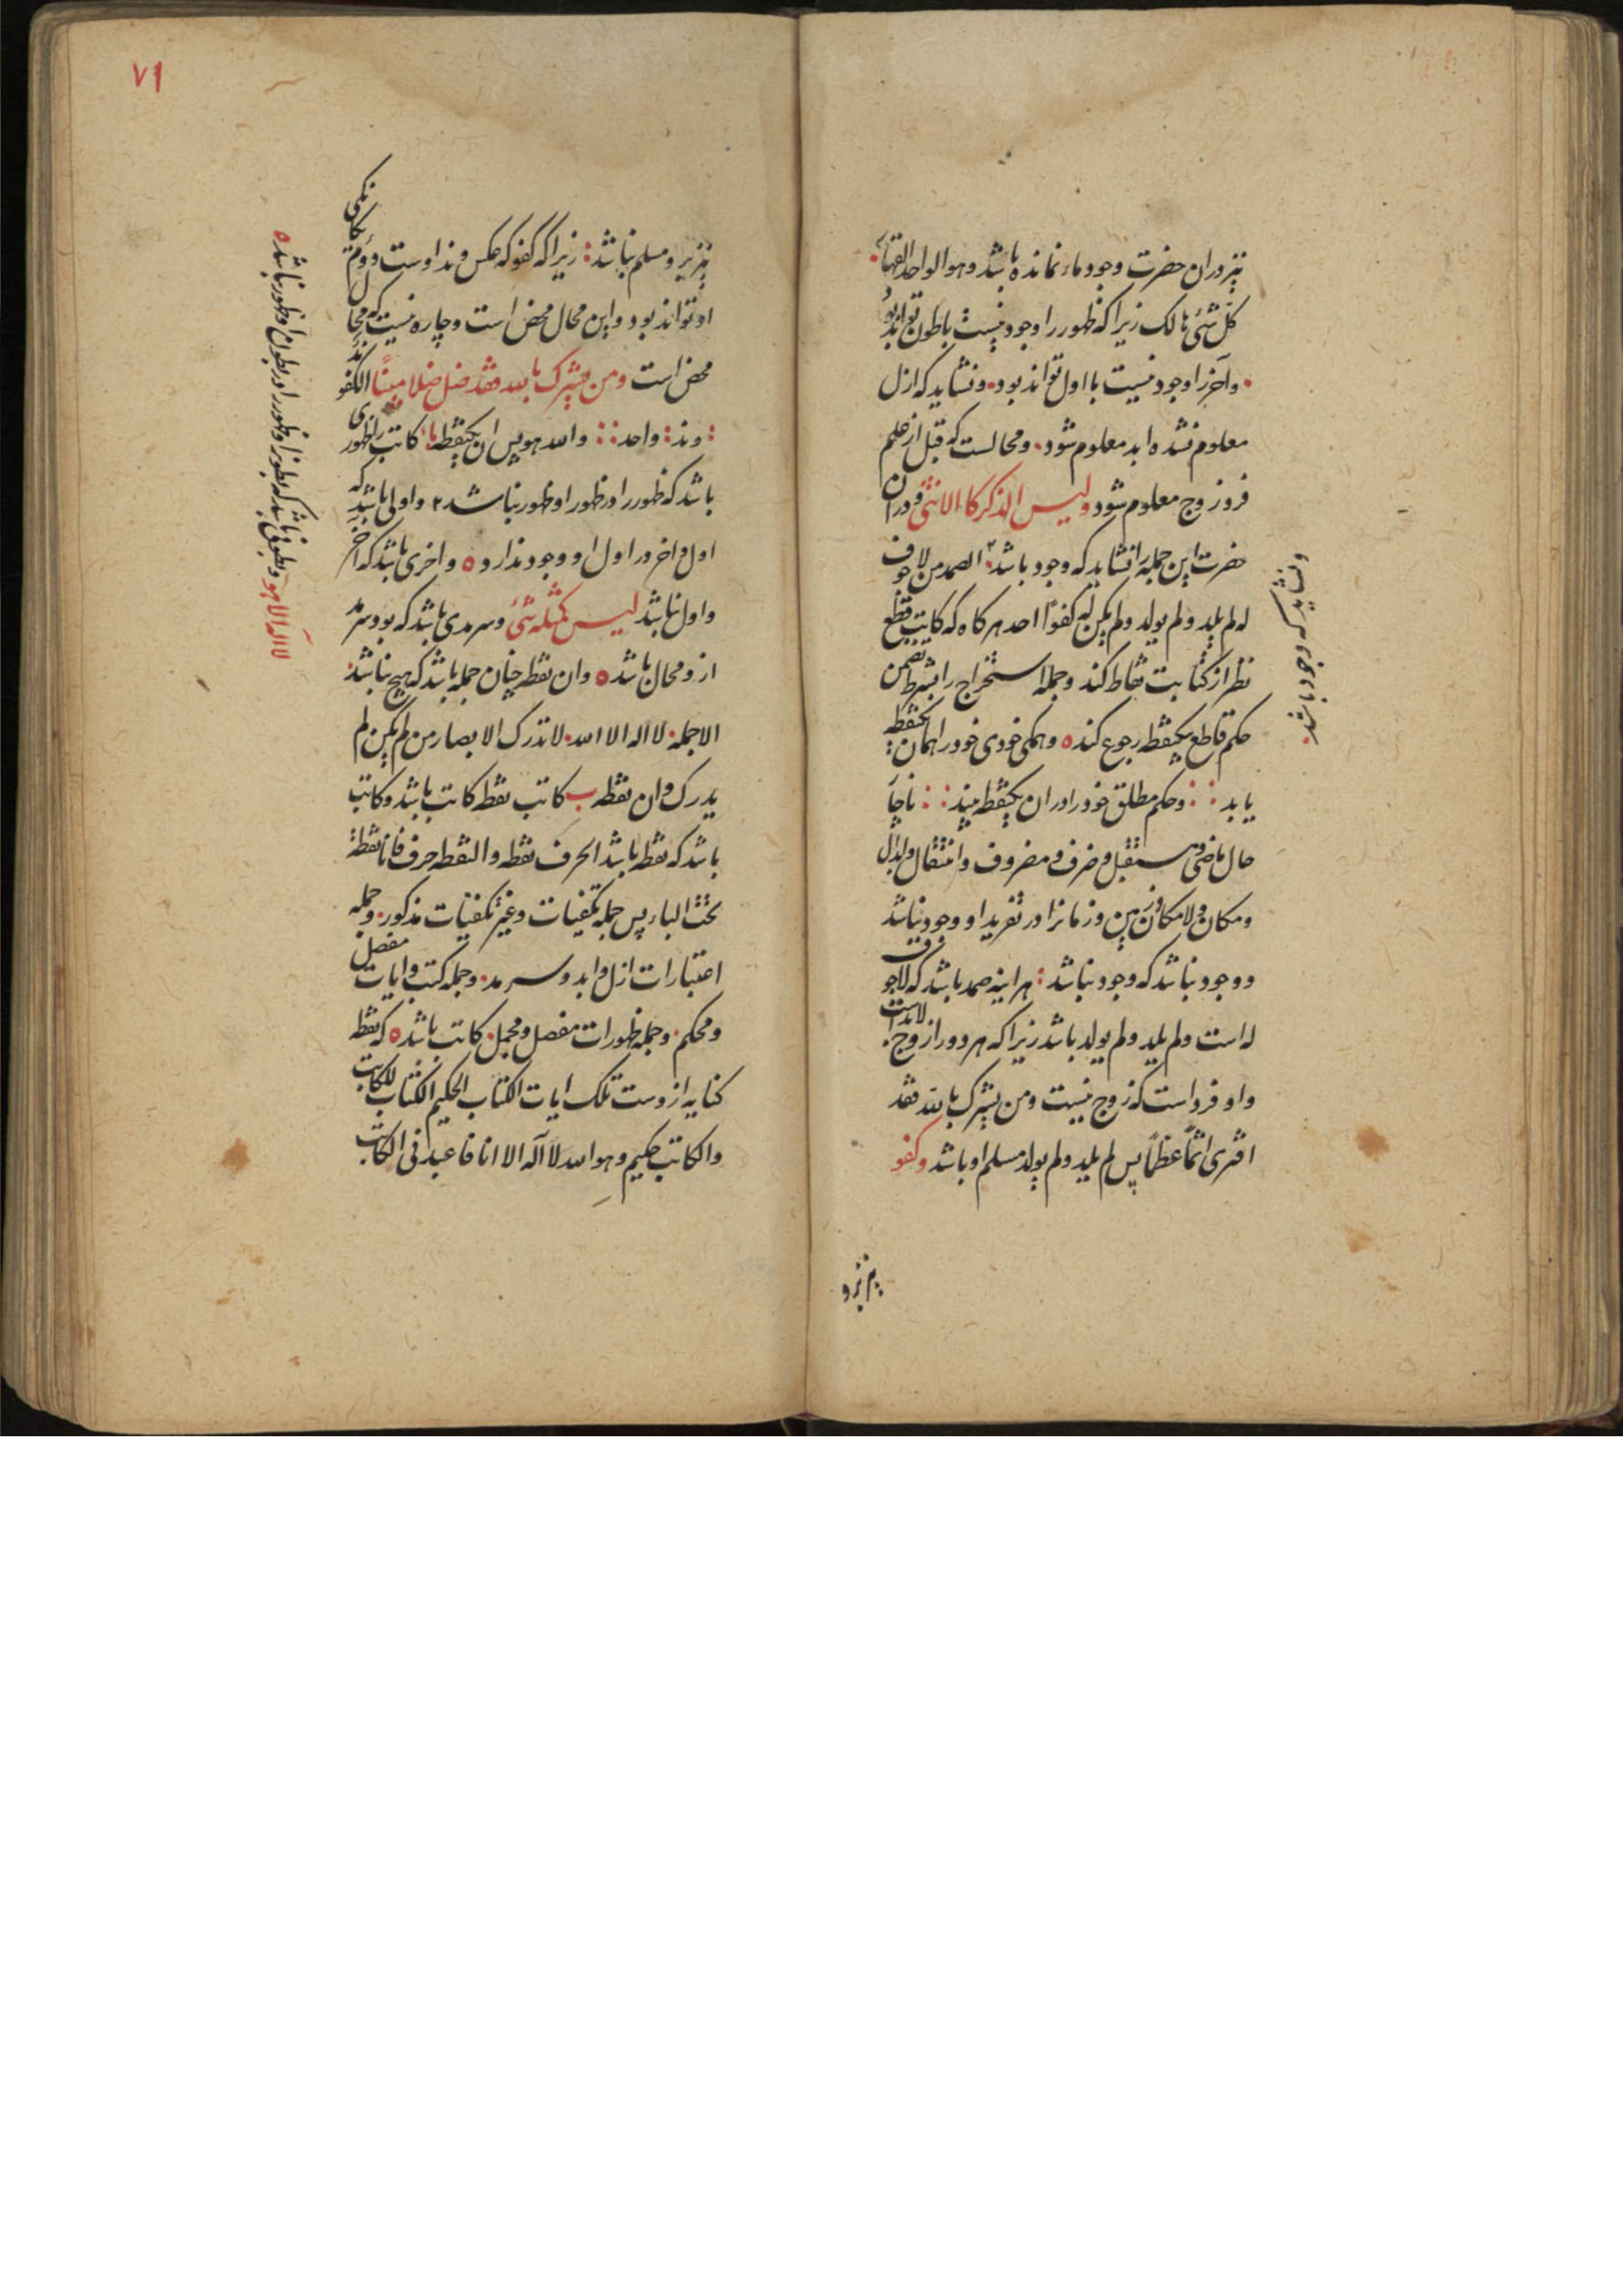 نیز در ان حضرت وجود ماء نمانده باشد وهو الواحد القهار
کل شیٔ هالک زیرا که ظهور را وجود نیست با بطون تواند بود
وآخر را وجود نیست با اول تواند بود ونشاید که ازل
معلوم نشده ابد معلوم شود ومحالست که قبل از علم
فرد زوج معلوم شود ولیس الذکر کا الانثی ودر ان
حضرت این جمله را نشاید که وجود باشد الصمد من لا جوف
له لم یلد ولم یولد ولم یکن له کفوًا احد هر کاه که کاتب قطع
نظر از کتابت نقاط کند وجمله استخراج را بشرط تضمن
حکم قاطع بیکنقطه رجوع کند وهمکی خودی خود را همان یکنقطه
یابد وحکم مطلق خود را در ان یکنقطه بیند ناچار
حال ماضی ومستقبل وظرف ومظروف وانتقال وابدال
ومکان ولامکان وزمین وزمانرا در تفرید او وجود نباشد
ووجود نباشد که وجود نباشد هر اینه صمد باشد که لا جوف
له است ولم یلد ولم یولد باشد زیرا که هر دو را زوج لازم است
واو فرد است که زوج نیست ومن یشرک بالله فقد
افتری اثمًا عظیمًا پس لم یلد ولم یولد مسلم او باشد وکفو
ونشاید که وجود باشد
نیز برو
۷۱
نیز برو مسلم نباشد زیرا که کفو که عکس وند اوست دوم
او تواند بود واین محال محض است وچاره نیست که محال
محض است ومن یشرک بالله فقد ضل ضلالا مبینًا الکفو
وند واحد والله هو پس ان یکنقطه کاتب را ظهوری
باشد که ظهور را در ظهور او ظهور نباشد واولی باشد که
اول واخر در اول او وجود ندارد واخری باشد که اخر
واول نباشد لیس کمثله شیٔ وسرمدی باشد که بود وسرمد
ازو محال باشد وان نقطه چنان جمله باشد که هیچ نباشد
الا جمله لا اله الا الله لا تدرک الابصار من لم یکن لم
یدرک وان نقطه ب کاتب نقطه کاتب باشد وکاتب
باشد که نقطه باشد الحرف نقطه والنقطه حرف فانا نقطة
تحت الباء پس جمله تکفیات وغیر تکفیات مذکور وجمله
اعتبارات ازل وابد وسرمد وجمله کتب وایات مفصل
ومحکم وجمله ظهورات مفصل ومجمل کاتب باشد که نقطه
کنایه ازوست تلک ایات الکتاب الحکیم الکتاب للکاتب
والکاتب حکیم وهو الله لا آله الا انا فاعبدنی الکاتب
لا آله الا هو